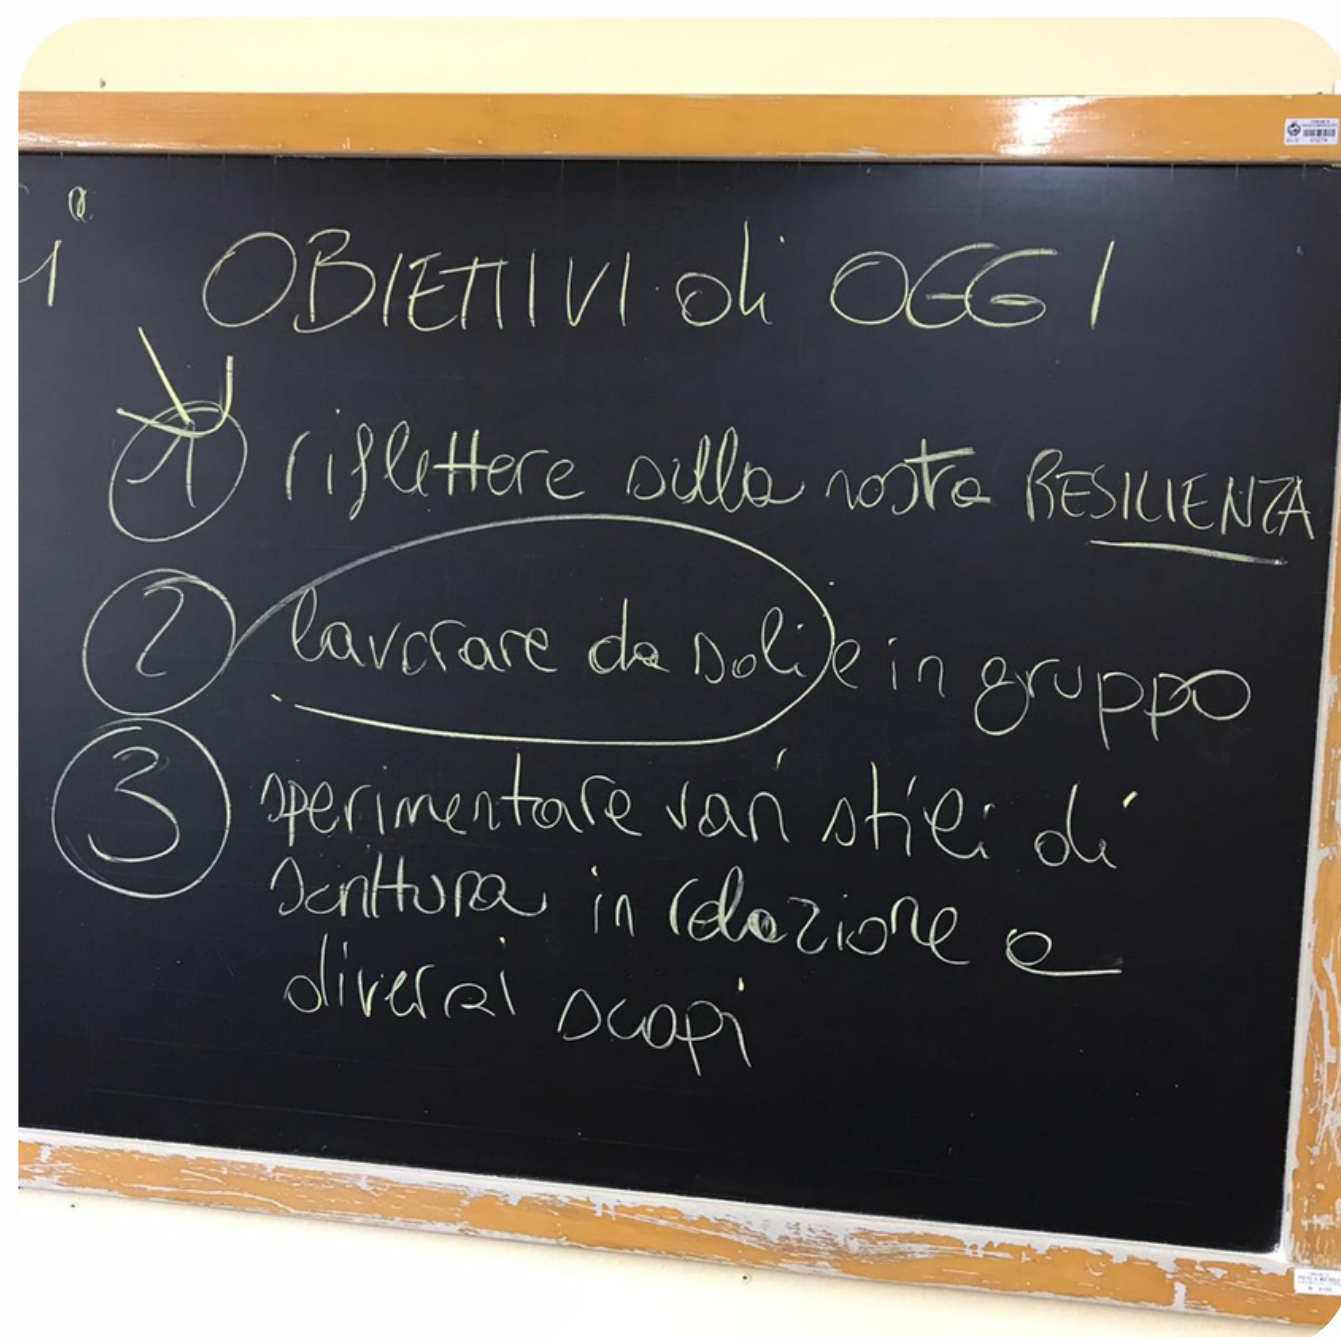 1ª OBIETTIVI di OGGI
1 riflettere sulla nostra RESILIENZA
2 lavorare da soli e in gruppo
3 sperimentare vari stili di
scrittura in relazione a
diversi scopi